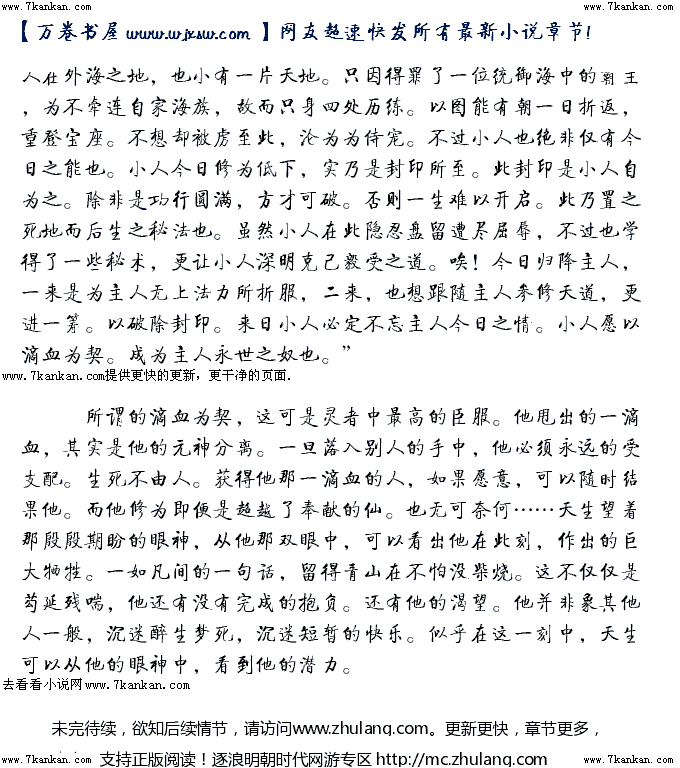 www.7kankan.com www.7kankan.com
【万卷书屋 www.wjxsw.com 】网友超速快发所有最新小说章节!
人在外海之地，也小有一片天地。只因得罪了一位统御海中的霸王
，为不牵连自家海族，故而只身四处历练。以图能有朝一日折返，
重登宝座。不想却被虏至此，沦为为侍宠。不过小人也绝非仅有今
日之能也。小人今日修为低下，实乃是封印所至。此封印是小人自
为之。除非是功行圆满，方才可破。否则一生难以开启。此乃置之
死地而后生之秘法也。虽然小人在此隐忍盘留遭尽屈辱，不过也学
得了一些秘术，更让小人深明克己毅受之道。唉！今日归降主人，
一来是为主人无上法力所折服，二来，也想跟随主人参修天道，更
进一筹。以破除封印。来日小人必定不忘主人今日之情。小人愿以
滴血为契。成为主人永世之奴也。”
www.7kankan.com提供更快的更新，更干净的页面.
所谓的滴血为契，这可是灵者中最高的臣服。他甩出的一滴
血，其实是他的元神分离。一旦落入别人的手中，他必须永远的受
支配。生死不由人。获得他那一滴血的人，如果愿意，可以随时结
果他。而他修为即便是超越了奉献的仙。也无可奈何……天生望着
那殷殷期盼的眼神，从他那双眼中，可以看出他在此刻，作出的巨
大牺牲。一如凡间的一句话，留得青山在不怕没柴烧。这不仅仅是
苟延残喘，他还有没有完成的抱负。还有他的渴望。他并非象其他
人一般，沉迷醉生梦死，沉迷短暂的快乐。似乎在这一刻中，天生
可以从他的眼神中，看到他的潜力。
去看看小说网www.7kankan.com
未完待续，欲知后续情节，请访问www.zhulang.com。更新更快，章节更多，
支持正版阅读！逐浪明朝时代网游专区 http://mc.zhulang.com
www.7kankan.com www.7kankan.com